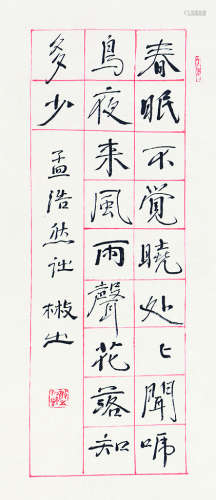 春眠不覺曉处々聞啼
鳥夜来風雨聲花落知
多少
孟浩然诗